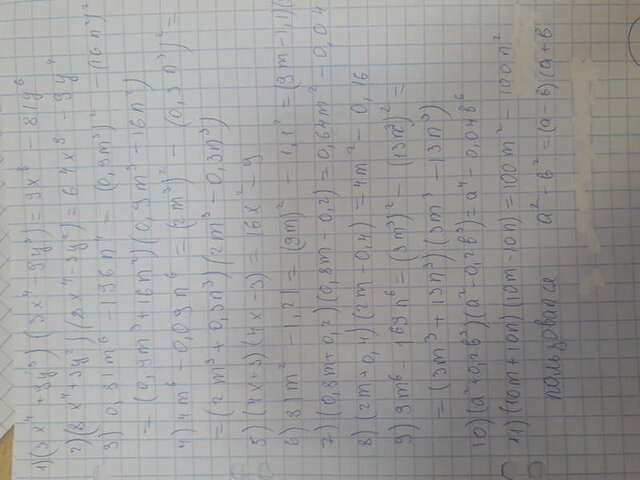 1) (3x⁴ + 9y³) (3x⁴ - 9y³) = 9x⁸ - 81y⁶
2) (8x⁴+3y²) (8x⁴-3y²) = 64x⁸ - 9y⁴
3) 0,81m⁶ - 196n⁴ = (0,9m³)² - (16n²)²
= (0,9m³+16n²) (0,9m³-16n²)
4) 4m⁶ - 0,09n⁶ = (2m³)² - (0,3n³)² =
= (2m³+0,3n³) (2m³ - 0,3n³)
5) (4x+3) (4x-3) = 16x² - 9
6) 81m² - 1,21 = (9m)² - 1,1² = (9m-1,1)(
7) (0,8m+0,2) (0,8m-0,2) = 0,64m² - 0,04
8) (2m+0,4) (2m-0,4) = 4m² - 0,16
9) 9m⁶ - 169n⁶ = (3m³)² - (13n³)² =
= (3m³ + 13n³) (3m³ - 13n³)
10) (a²+0,2b³) (a²-0,2b³) = a⁴ - 0,04b⁶
11) (10m+10n) (10m-10n) = 100m² - 100n²
пользовался a²-b² = (a-b) (a+b